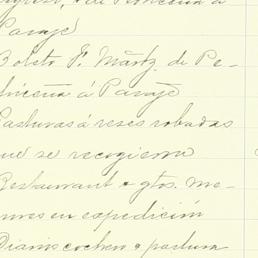 Pasaje
Boleto F. Martz. de Pe-
ricena á Pasaje
Pasturas á reses robadas
que se recogieron
Restaurant e gtos. me-
nores en expedición
Diarios coches e pastura